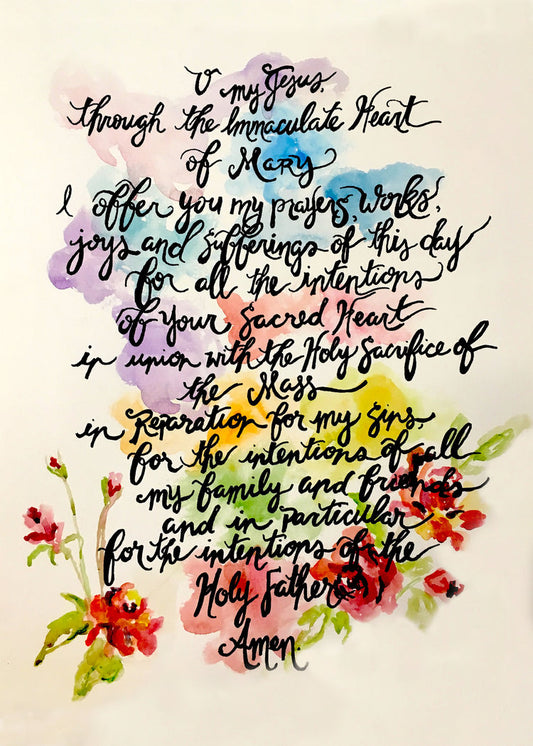 O my Jesus,
through the Immaculate Heart
of Mary
I offer you my prayers, works,
joys and sufferings of this day
for all the intentions
of your Sacred Heart
in union with the Holy Sacrifice of
the Mass
in Reparation for my sins,
for the intentions of all
my family and friends
and in particular
for the intentions of the
Holy Father
Amen.